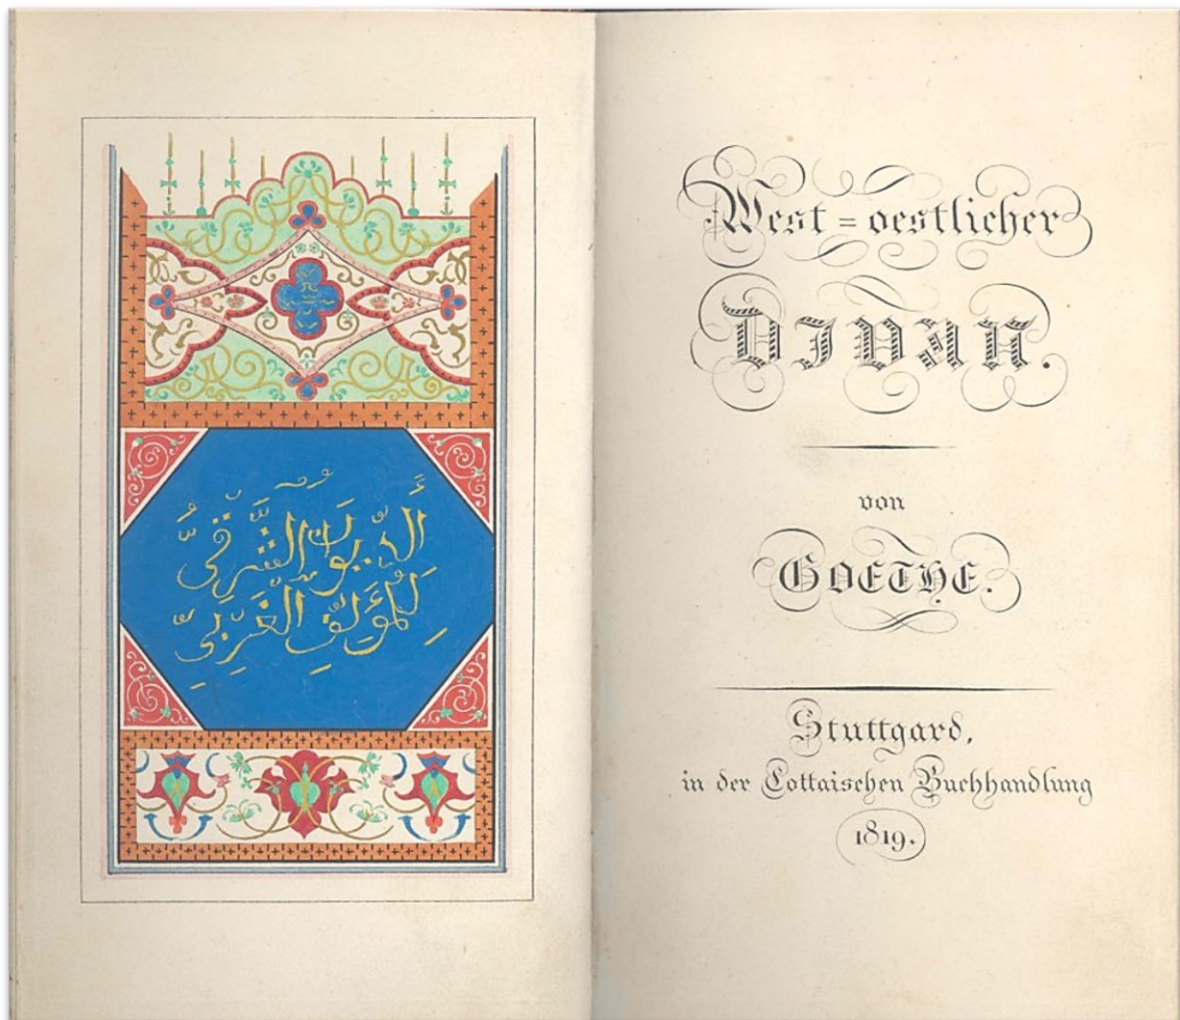 ألديوان الشرقي
للمؤلف الغربي
West=oestlicher
DIVAN.
von
GOETHE.
Stuttgard,
in der Cottaischen Buchhandlung
1819.